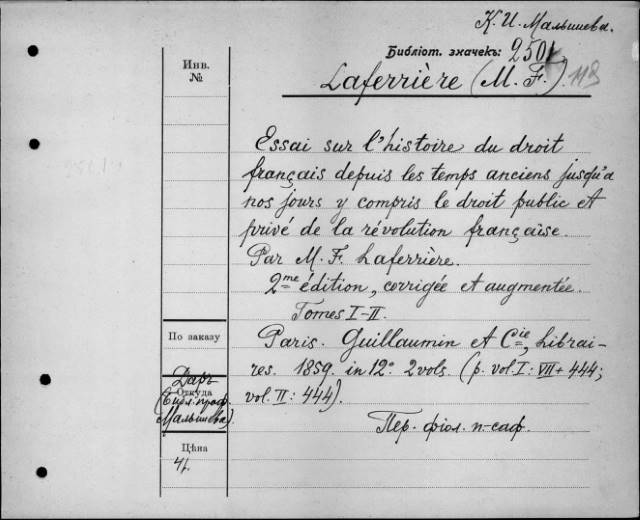 К. И. Малышева.
Библіот. значекъ: 2501
Laferrière (M. F.). 113
Инв.
№
Essai sur l'histoire du droit
français depuis les temps anciens jusqu'à
nos jours y compris le droit public et
privé de la révolution française.
Par M. F. Laferrière.
2me édition, corrigée et augmentée.
Tomes I-II.
По заказу
Paris. Guillaumin et Cie, librai-
res. 1859. in 12º 2 vols. (p. vol. I: VIII + 444;
vol. II: 444).
Даръ
Откуда
(Библ. проф.
Малышева).
Пер. фіол. п-саф.
Цѣна